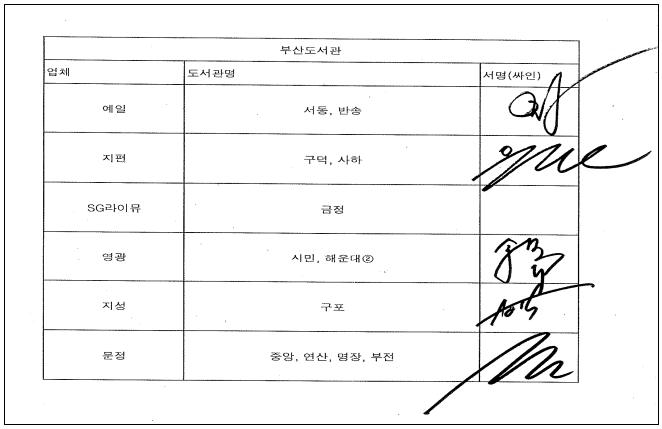 부산도서관
업체 도서관명 서명(싸인)
예일 서동, 반송
지편 구덕, 사하
SG라이뮤 금정
영광 시민, 해운대②
지성 구포
문정 중앙, 연산, 명장, 부전